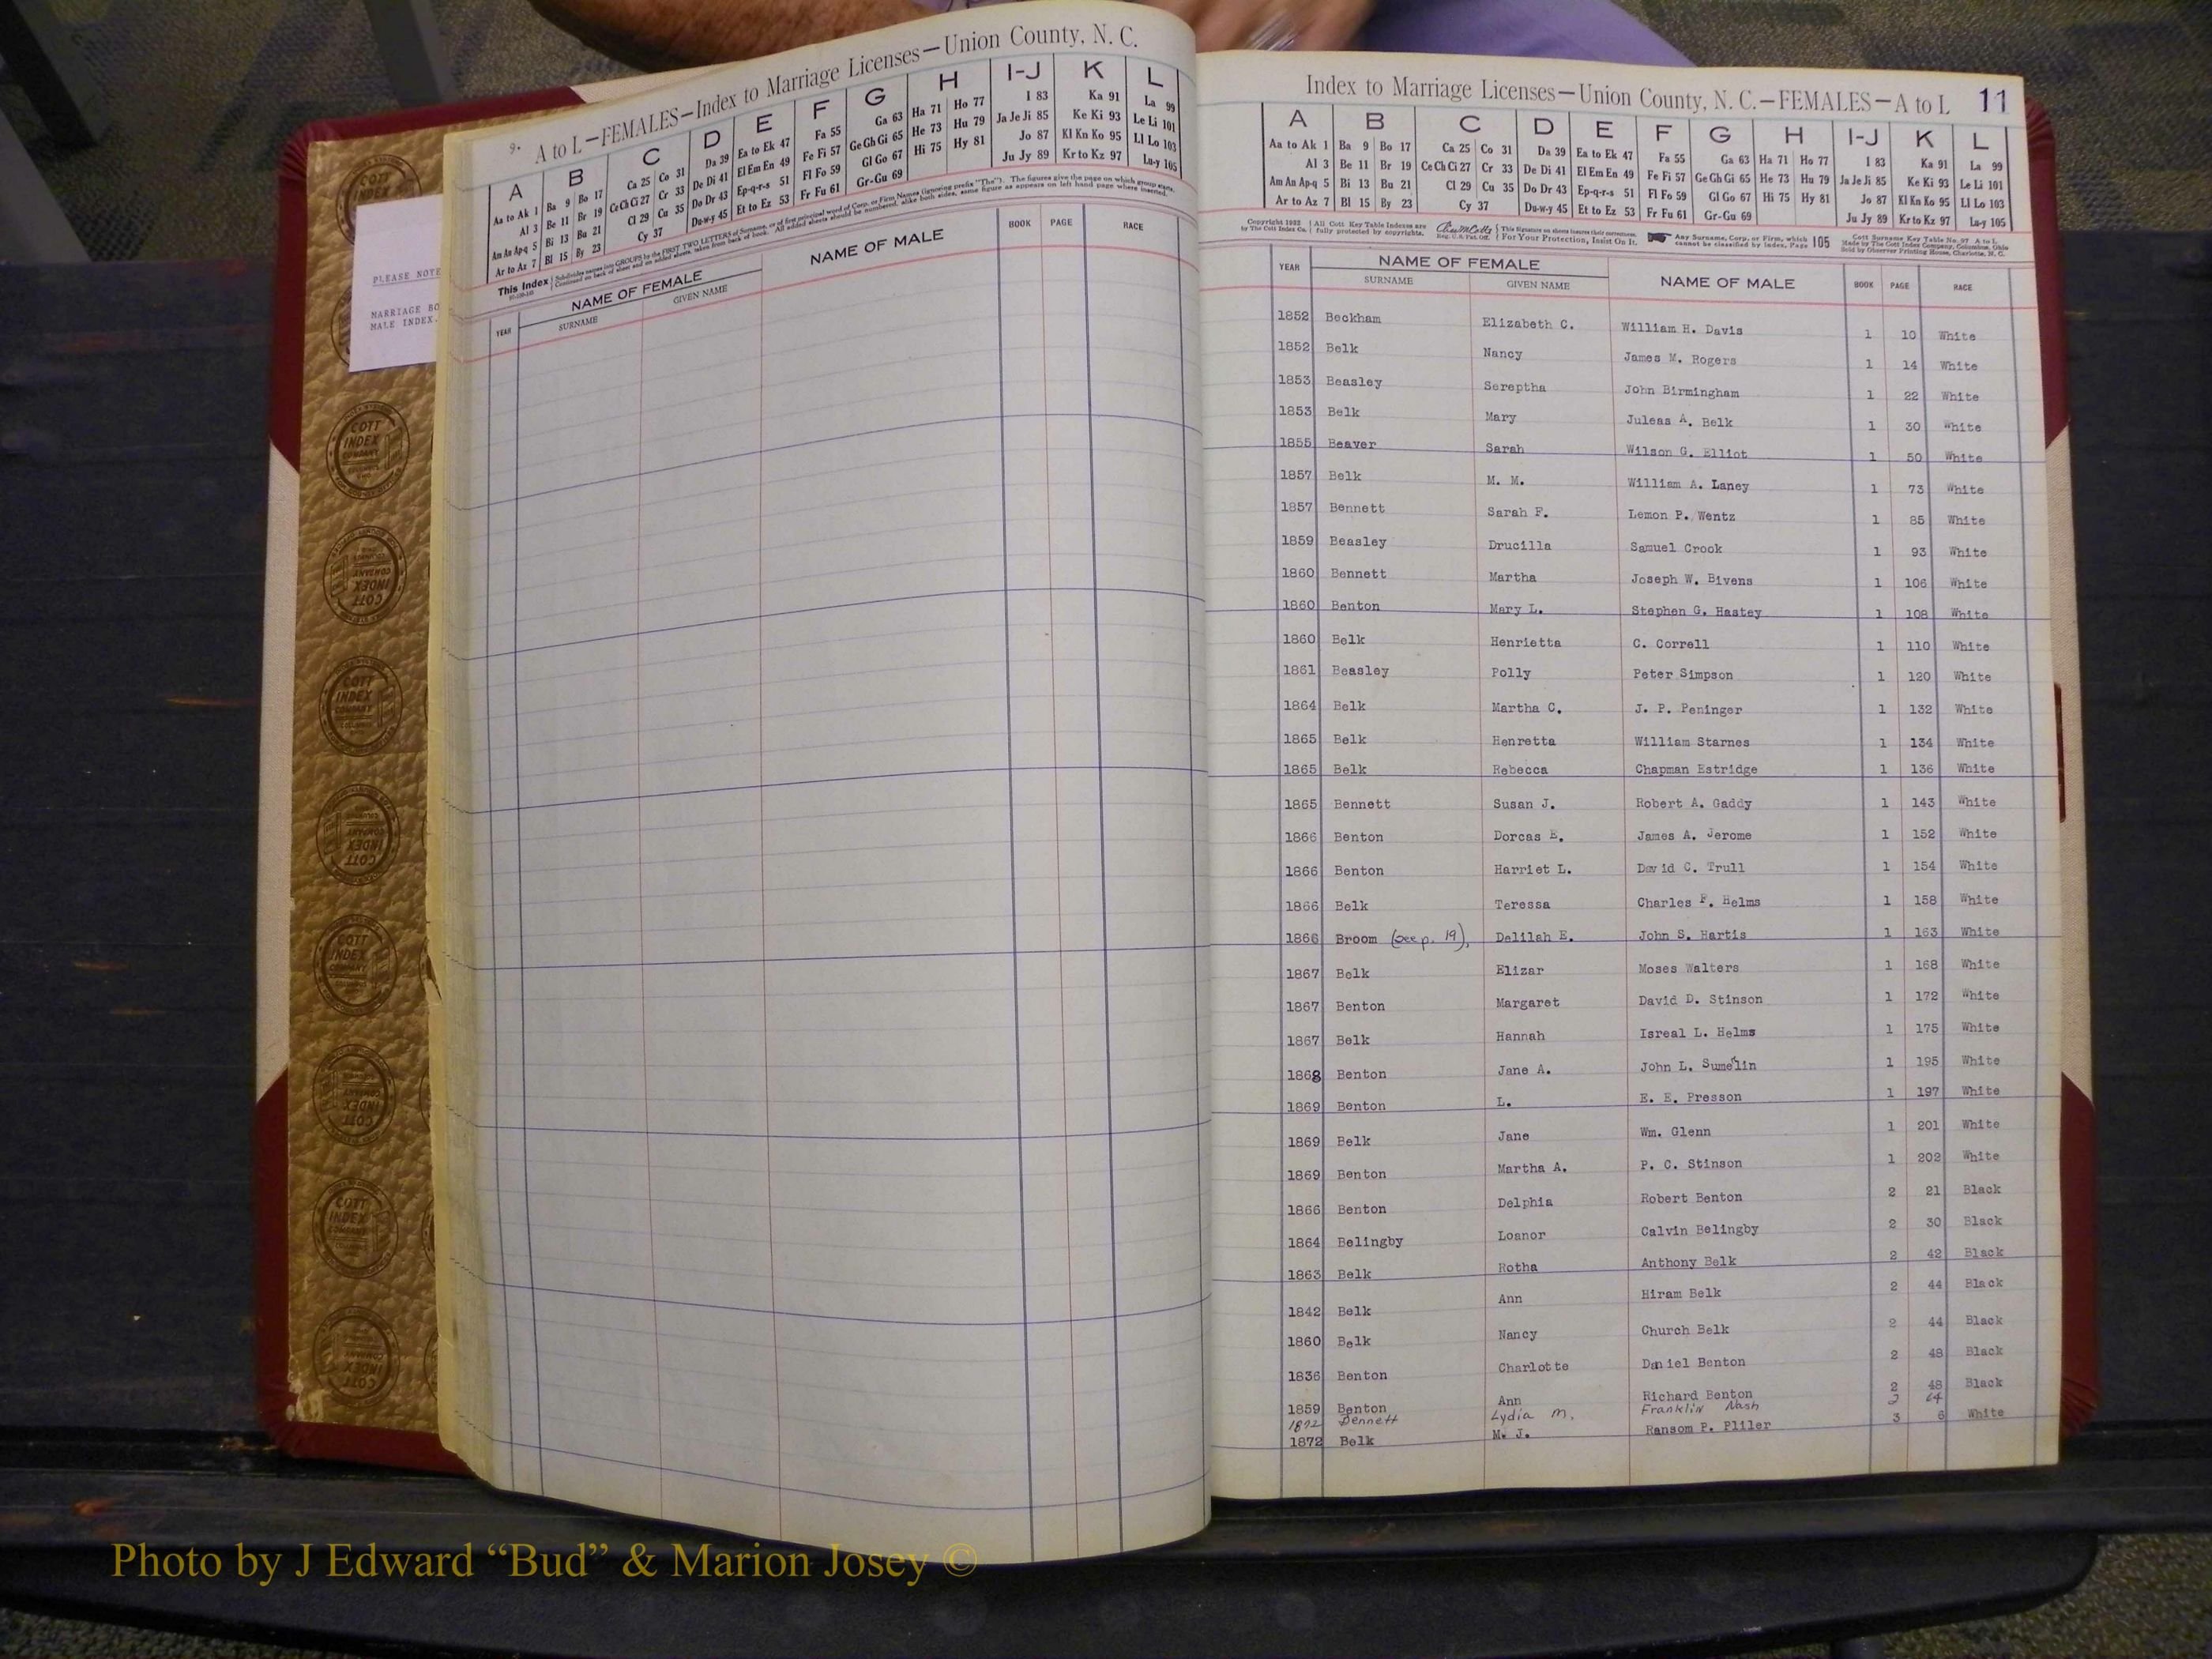 PLEASE NOTE
MARRIAGE BO
MALE INDEX.
9. A to L—FEMALES—Index to Marriage Licenses—Union County, N. C.
A B C D E F G H I-J K L
Aa to Ak 1 Ba 9 Bo 17 Ca 25 Co 31 Da 39 Ea to Ek 47 Fa 55 Ga 63 Ha 71 Ho 77 I 83 Ka 91 La 99
Al 3 Be 11 Br 19 Ce Ch Ci 27 Cr 33 De Di 41 El Em En 49 Fe Fi 57 Ge Gh Gi 65 He 73 Hu 79 Ja Je Ji 85 Ke Ki 93 Le Li 101
Am An Ap-q 5 Bi 13 Bu 21 Cl 29 Cu 35 Do Dr 43 Ep-q-r-s 51 Fl Fo 59 Gl Go 67 Hi 75 Hy 81 Jo 87 Kl Kn Ko 95 Ll Lo 103
Ar to Az 7 Bl 15 By 23 Cy 37 Du-w-y 45 Et to Ez 53 Fr Fu 61 Gr-Gu 69 Ju Jy 89 Kr to Kz 97 Lu-y 105
This Index Subdivides names into GROUPS by the FIRST TWO LETTERS of Surname, or of first principal word of Corp. or Firm Names (ignoring prefix "The"). The figures give the page on which group starts.
Continued on back of sheet and on added sheets, taken from back of book. All added sheets should be numbered, alike both sides, same figure as appears on left hand page where inserted.
YEAR NAME OF FEMALE NAME OF MALE BOOK PAGE RACE
SURNAME GIVEN NAME
Index to Marriage Licenses—Union County, N. C.—FEMALES—A to L 11
A B C D E F G H I-J K L
Aa to Ak 1 Ba 9 Bo 17 Ca 25 Co 31 Da 39 Ea to Ek 47 Fa 55 Ga 63 Ha 71 Ho 77 I 83 Ka 91 La 99
Al 3 Be 11 Br 19 Ce Ch Ci 27 Cr 33 De Di 41 El Em En 49 Fe Fi 57 Ge Gh Gi 65 He 73 Hu 79 Ja Je Ji 85 Ke Ki 93 Le Li 101
Am An Ap-q 5 Bi 13 Bu 21 Cl 29 Cu 35 Do Dr 43 Ep-q-r-s 51 Fl Fo 59 Gl Go 67 Hi 75 Hy 81 Jo 87 Kl Kn Ko 95 Ll Lo 103
Ar to Az 7 Bl 15 By 23 Cy 37 Du-w-y 45 Et to Ez 53 Fr Fu 61 Gr-Gu 69 Ju Jy 89 Kr to Kz 97 Lu-y 105
by The Cott Index Co. All Cott Key Table Indexes are fully protected by copyrights. For Your Protection, Insist On It. Any Surname, Corp. or Firm, which cannot be classified by index, Page 105 Made by The Cott Index Company, Columbus, Ohio Sold by Observer Printing House, Charlotte, N. C.
YEAR NAME OF FEMALE NAME OF MALE BOOK PAGE RACE
SURNAME GIVEN NAME
1852 Beckham Elizabeth C. William H. Davis 1 10 White
1852 Belk Nancy James M. Rogers 1 14 White
1853 Beasley Sereptha John Birmingham 1 22 White
1853 Belk Mary Juleas A. Belk 1 30 White
1855 Beaver Sarah Wilson G. Elliot 1 50 White
1857 Belk M. M. William A. Laney 1 73 White
1857 Bennett Sarah F. Lemon P. Wentz 1 85 White
1859 Beasley Drucilla Samuel Crook 1 93 White
1860 Bennett Martha Joseph W. Bivens 1 106 White
1860 Benton Mary L. Stephen G. Hastey 1 108 White
1860 Belk Henrietta C. Correll 1 110 White
1861 Beasley Polly Peter Simpson 1 120 White
1864 Belk Martha C. J. P. Peninger 1 132 White
1865 Belk Henretta William Starnes 1 134 White
1865 Belk Rebecca Chapman Estridge 1 136 White
1865 Bennett Susan J. Robert A. Gaddy 1 143 White
1866 Benton Dorcas E. James A. Jerome 1 152 White
1866 Benton Harriet L. David C. Trull 1 154 White
1866 Belk Teressa Charles F. Helms 1 158 White
1866 Broom (see p. 19), Delilah E. John S. Hartis 1 163 White
1867 Belk Elizar Moses Walters 1 168 White
1867 Benton Margaret David D. Stinson 1 172 White
1867 Belk Hannah Isreal L. Helms 1 175 White
1868 Benton Jane A. John L. Sumelin 1 195 White
1869 Benton L. E. E. Presson 1 197 White
1869 Belk Jane Wm. Glenn 1 201 White
1869 Benton Martha A. P. C. Stinson 1 202 White
1866 Benton Delphia Robert Benton 2 21 Black
1864 Belingby Loanor Calvin Belingby 2 30 Black
1863 Belk Rotha Anthony Belk 2 42 Black
1842 Belk Ann Hiram Belk 2 44 Black
1860 Belk Nancy Church Belk 2 44 Black
1836 Benton Charlotte Daniel Benton 2 48 Black
1859 Benton Ann Richard Benton 2 48 Black
1872 Bennett Lydia M. Franklin Nash 2 64
1872 Belk M. J. Ransom P. Pliler 3 6 White
COTT INDEX COMPANY
Photo by J Edward “Bud” & Marion Josey ©